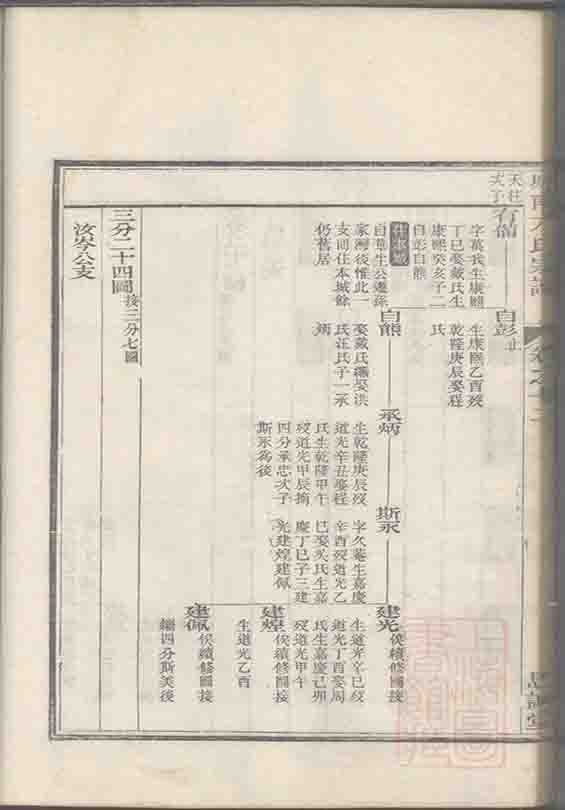 天柱
次子
有備
字萬我生康熙
丁巳娶戴氏生
康熙癸亥子二
自彭自熊
住本城
自華生公遷孫
家灣後惟此一
支尚住本城餘
仍舊居
自彭
止
生康熙乙酉歿
乾隆庚辰娶程
氏
自熊
娶戴氏繼娶洪
氏汪氏子一承
炳
承炳
生乾隆庚辰歿
道光辛丑娶程
氏生乾隆甲午
歿道光甲辰撫
四分承忠次子
斯永為後
斯永
字久菴生嘉慶
辛酉歿道光乙
巳娶吳氏生嘉
慶丁巳子三建
光建煌建佩
建光
俟續修圖接
生道光辛巳歿
道光丁酉娶周
氏生嘉慶己卯
歿道光甲午
建煌
俟續修圖接
生道光乙酉
建佩
俟續修圖接
繼四分斯美後
三分二十四圖
接三分七圖
汝岑公支